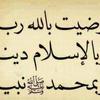 رضيت بالله رب
بالإسلام دين
بمحمد ﷺ نبي